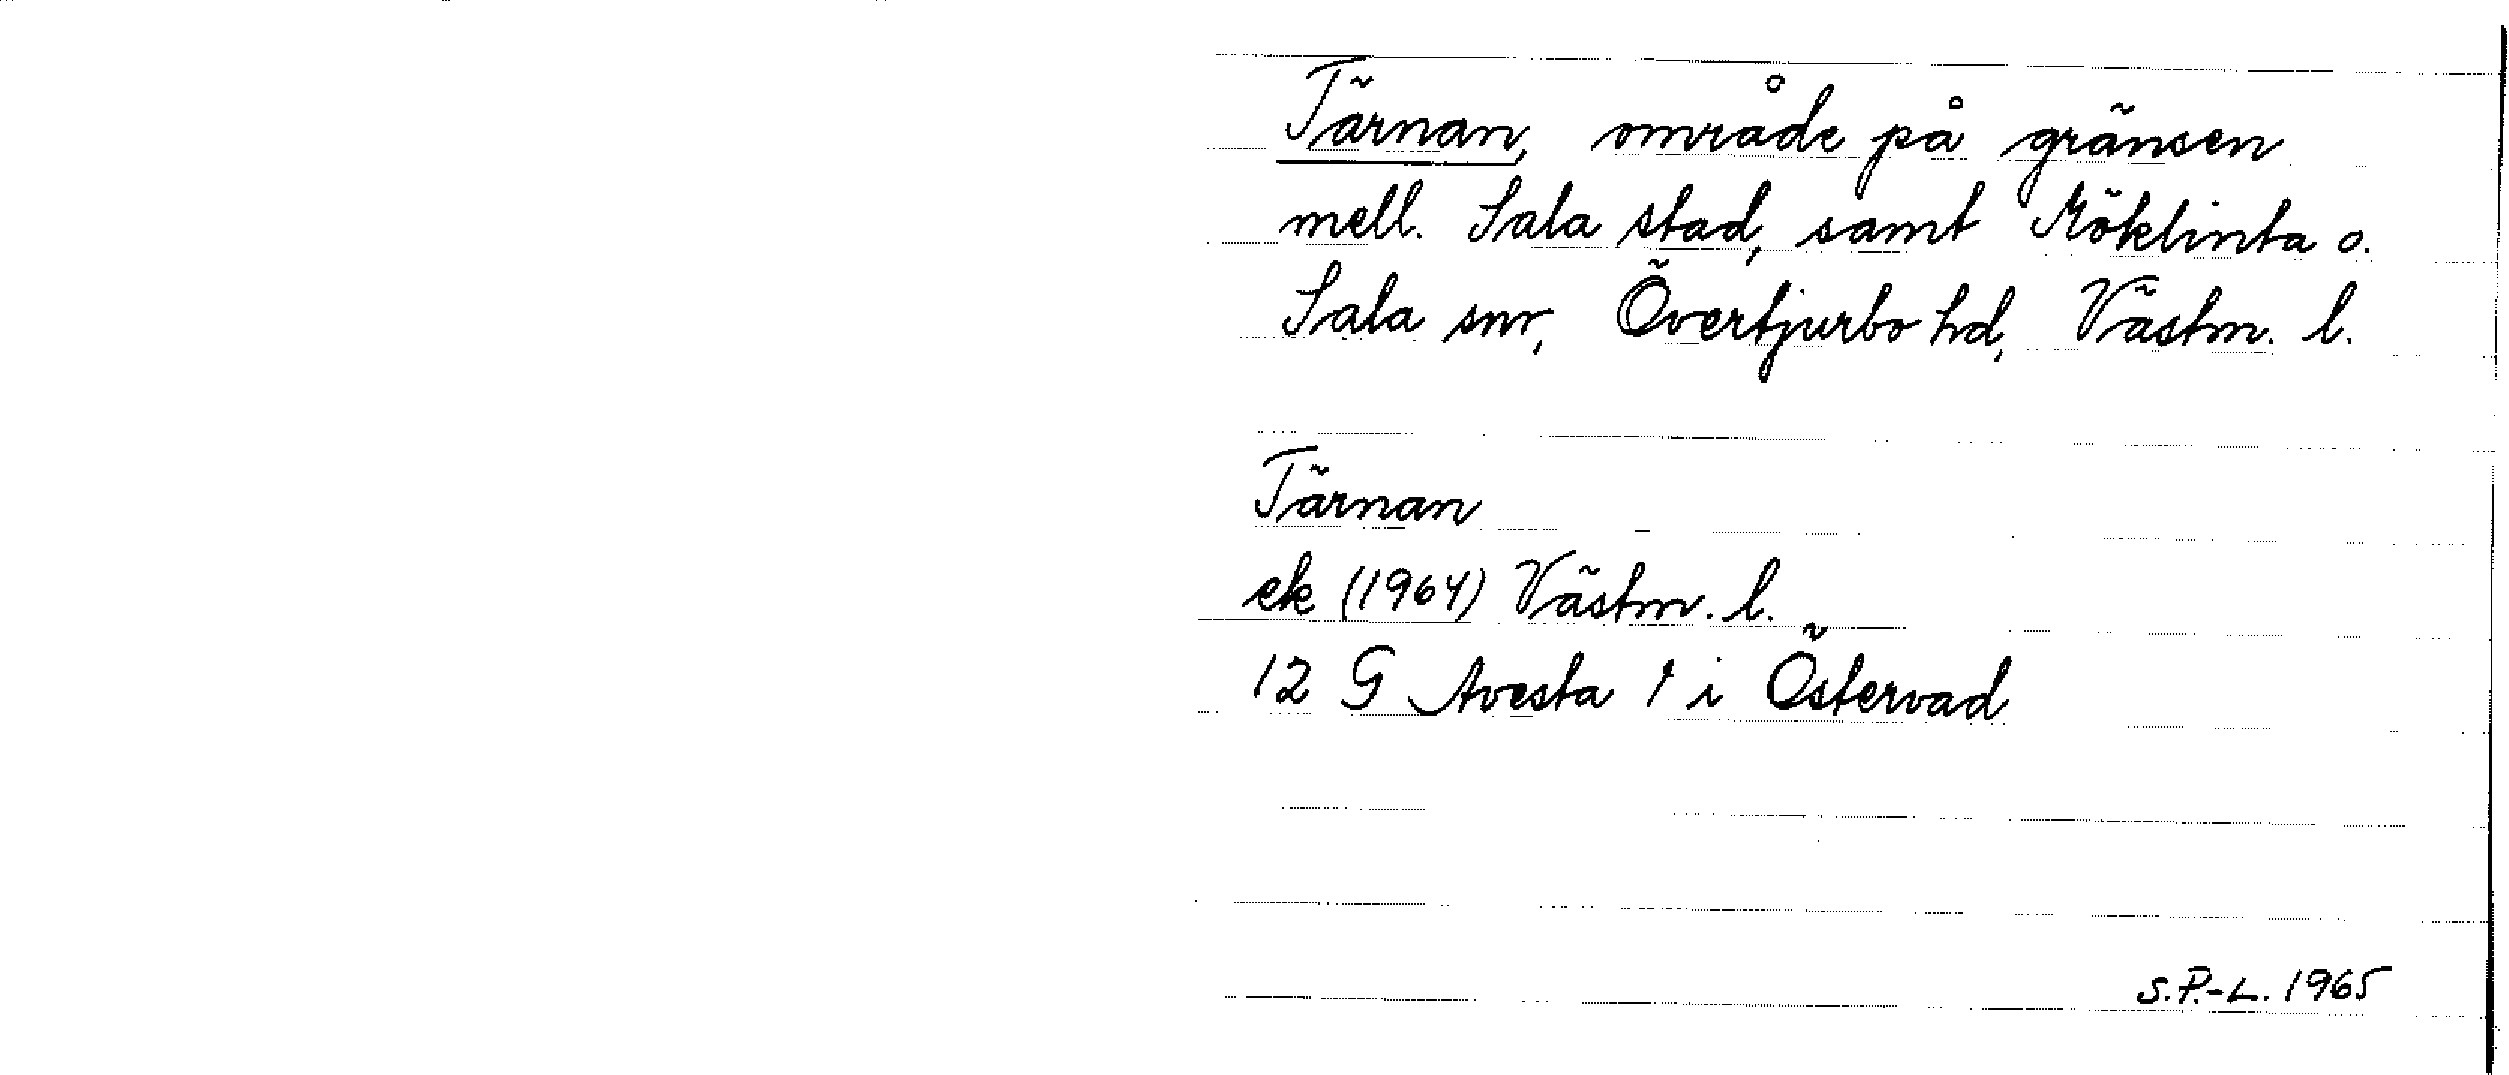 Tärnan, område på gränsen
mell. Sala stad, samt Möklinta o.
Sala snr, Övertjurbo hd, Västm. l.
Tärnan
ek (1964) Västm. l.
12 G Avesta 1 i Östervad
S.P.-L. 1965